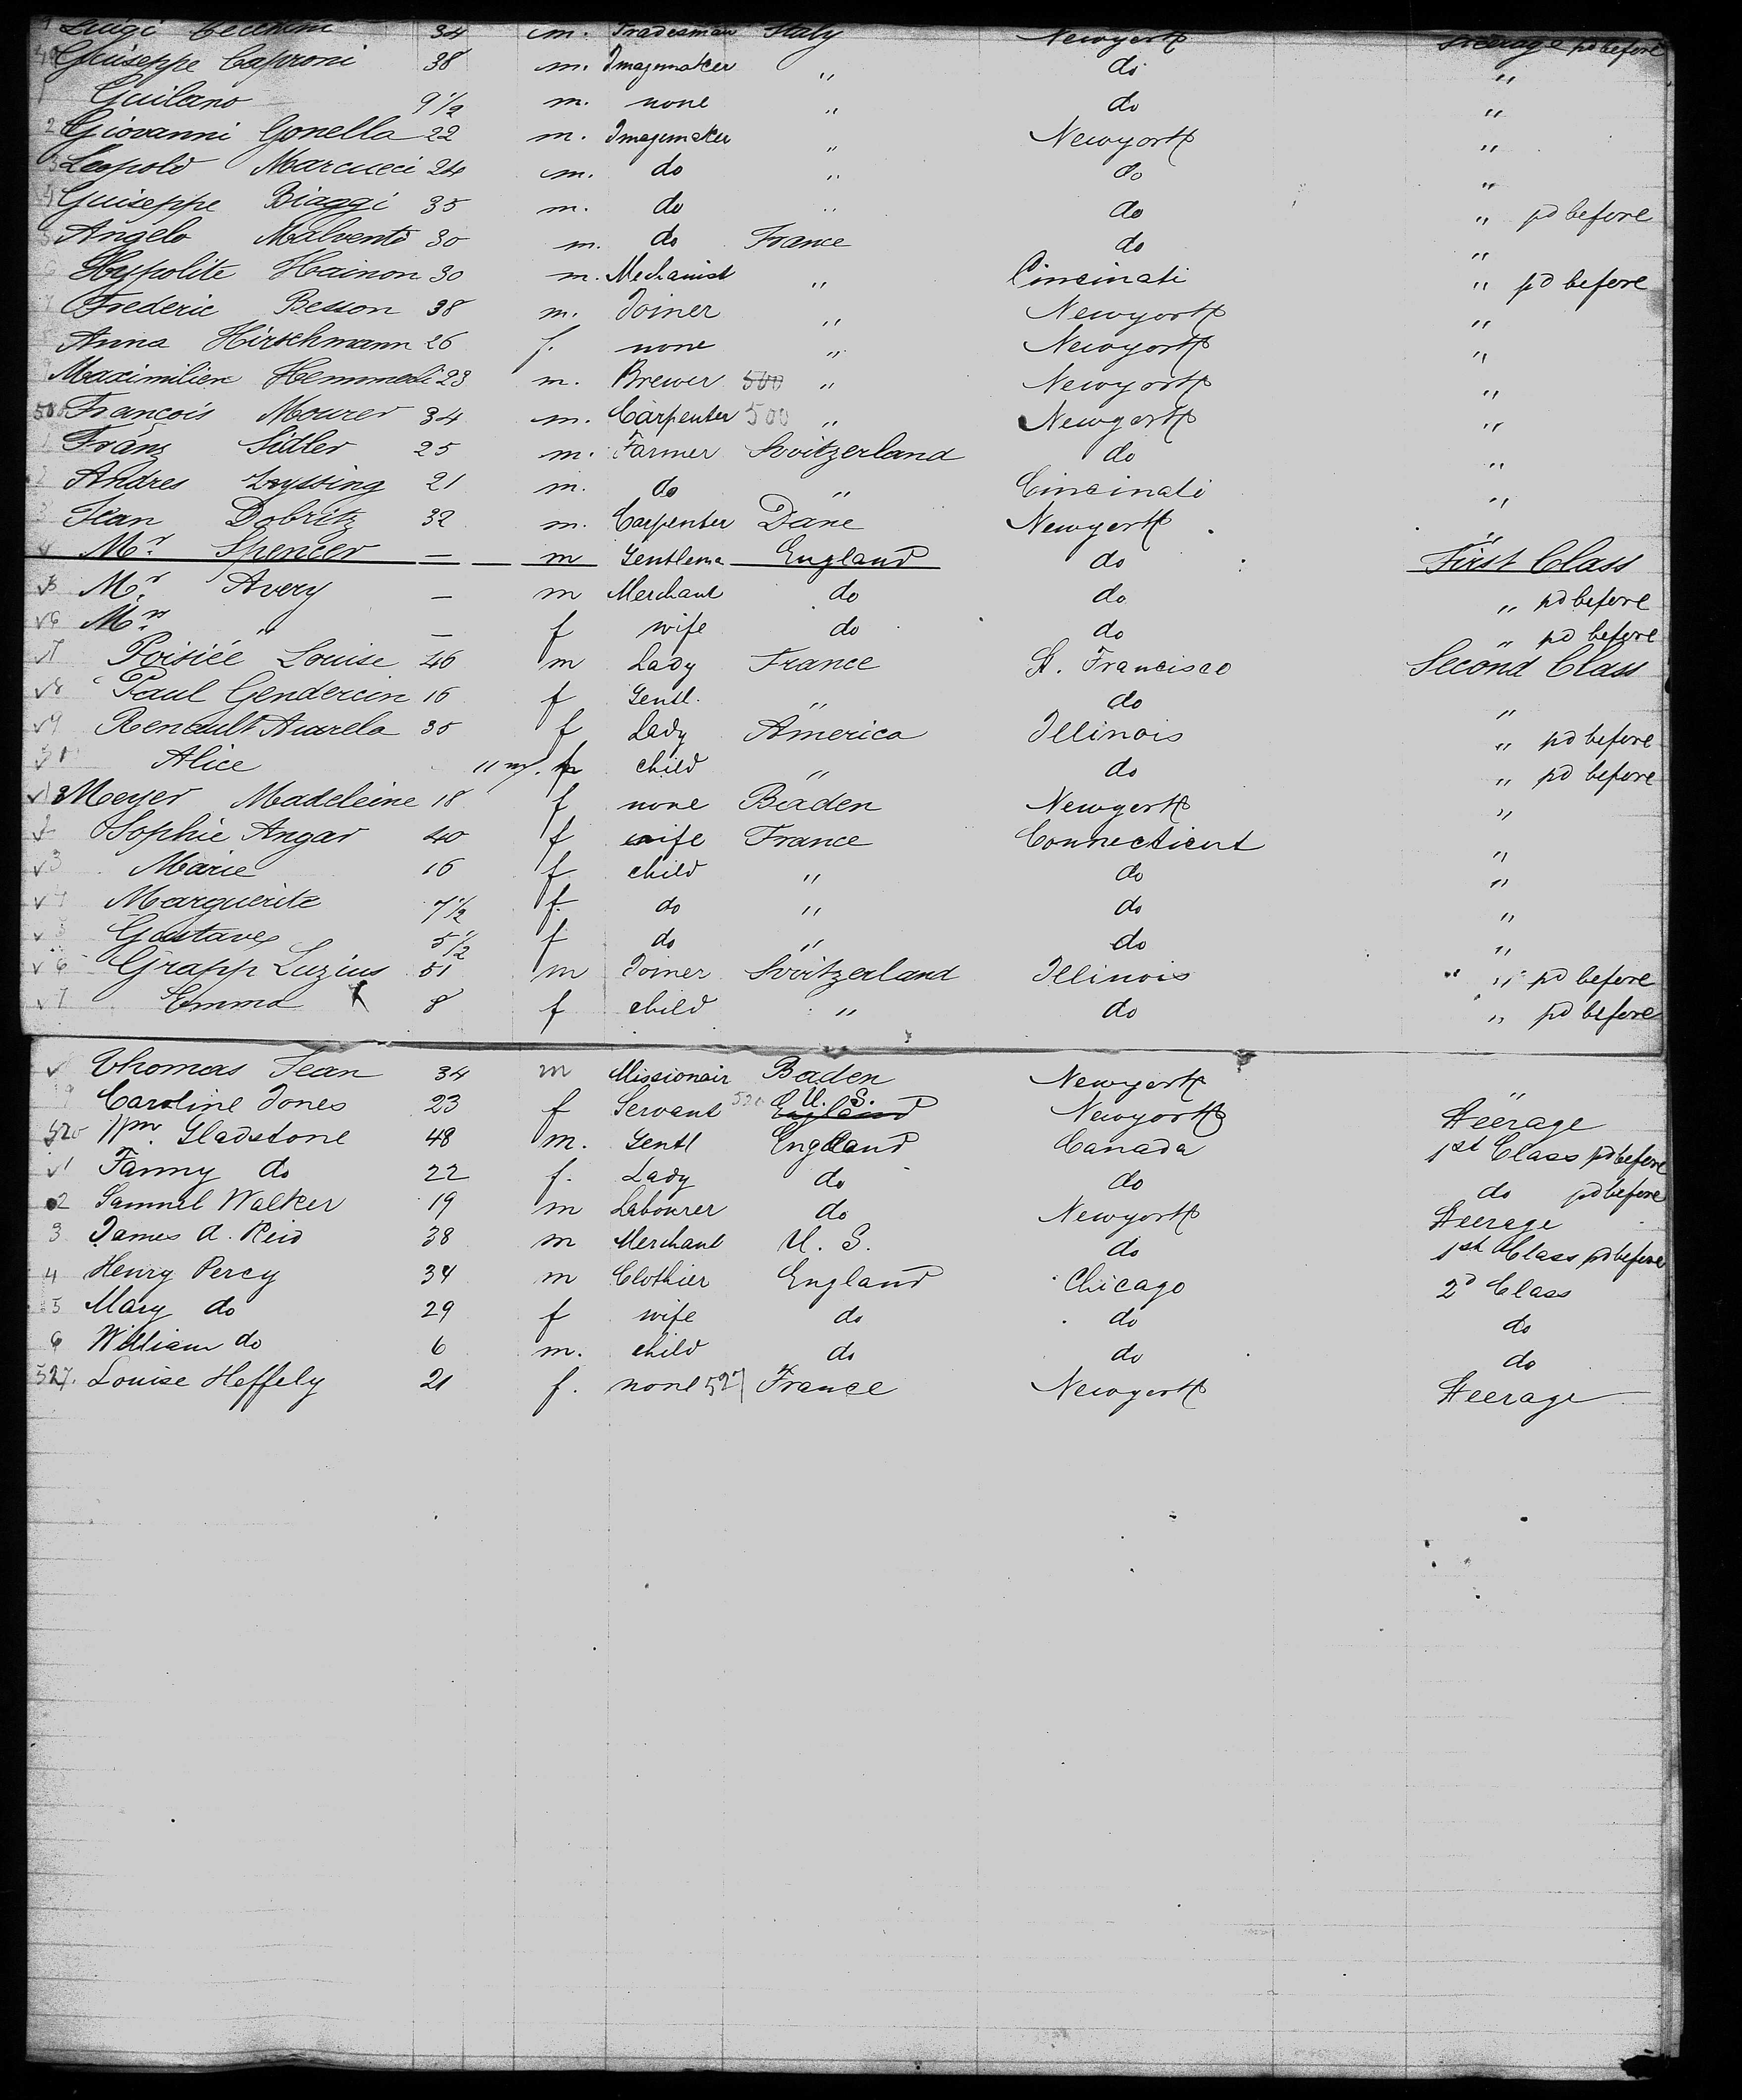 Luigi Cecchini 34 m. Tradesman Italy Newyork Steerage pd before
Guiseppe Caproni 38 m. Imagemaker " do "
1 Guilano 9 1/2 m. none " do "
2 Giovanni Gonella 22 m. Imagemaker " Newyork "
3 Leopold Marcucci 24 m. do " do "
4 Guiseppe Biaggi 35 m. do " do " pd before
5 Angelo Malventi 30 m. do France do "
6 Hypolite Hainon 30 m. Mechanist " Cincinati " pd before
7 Frederic Besson 38 m. Joiner " Newyork "
8 Anna Hirschmann 26 f. none " Newyork "
9 Maximilien 23 m. Brewer 500 " Newyork "
500 François Mourer 34 m. Carpenter 500 " Newyork "
1 Franz Sidler 25 m. Farmer Switzerland do "
2 Andres 21 m. do " Cincinati "
3 Jean Dobritz 32 m. Carpenter Dane Newyork "
4 Mr. Spencer — m Gentlema England do First Class
5 Mr. Avery — m Merchant do do " pd before
6 Mrs " — f wife do do " pd before
7 Poisiée Louise 46 m Lady France St. Francisco Second Class
8 Paul Gendercin 16 f Gentl. " do "
9 Renault Aurela 35 f Lady America Illinois " pd before
Alice 11 m. f child " do " pd before
Meyer Madeleine 18 f none Baden Newyork "
Sophie Angar 40 f wife France Connecticut "
3 Marie 16 f child " do "
4 Marguerite 7 1/2 f do " do "
5 Gustave 5 1/2 f do " do "
6 Grapp Luzius 51 m Joiner Switzerland Illinois " pd before
7 Emma 8 f child " do " pd before
Thomas Jean 34 m Missionair Baden Newyork "
9 Caroline Jones 23 f Servant 520 England U. S. Newyork Steerage
520 Wm. Gladstone 48 m. Gentl England Canada 1st Class pd before
1 Fanny do 22 f. Lady do do do pd before
2 Samuel Walker 19 m Labourer do Newyork Steerage
3 James D. Reid 38 m Merchant U. S. do 1st Class pd before
4 Henry Percy 34 m Clothier England Chicago 2d Class
5 Mary do 29 f wife do do do
6 William do 6 m. child do do do
527. Louise Heffely 21 f. none 527 France Newyork Steerage